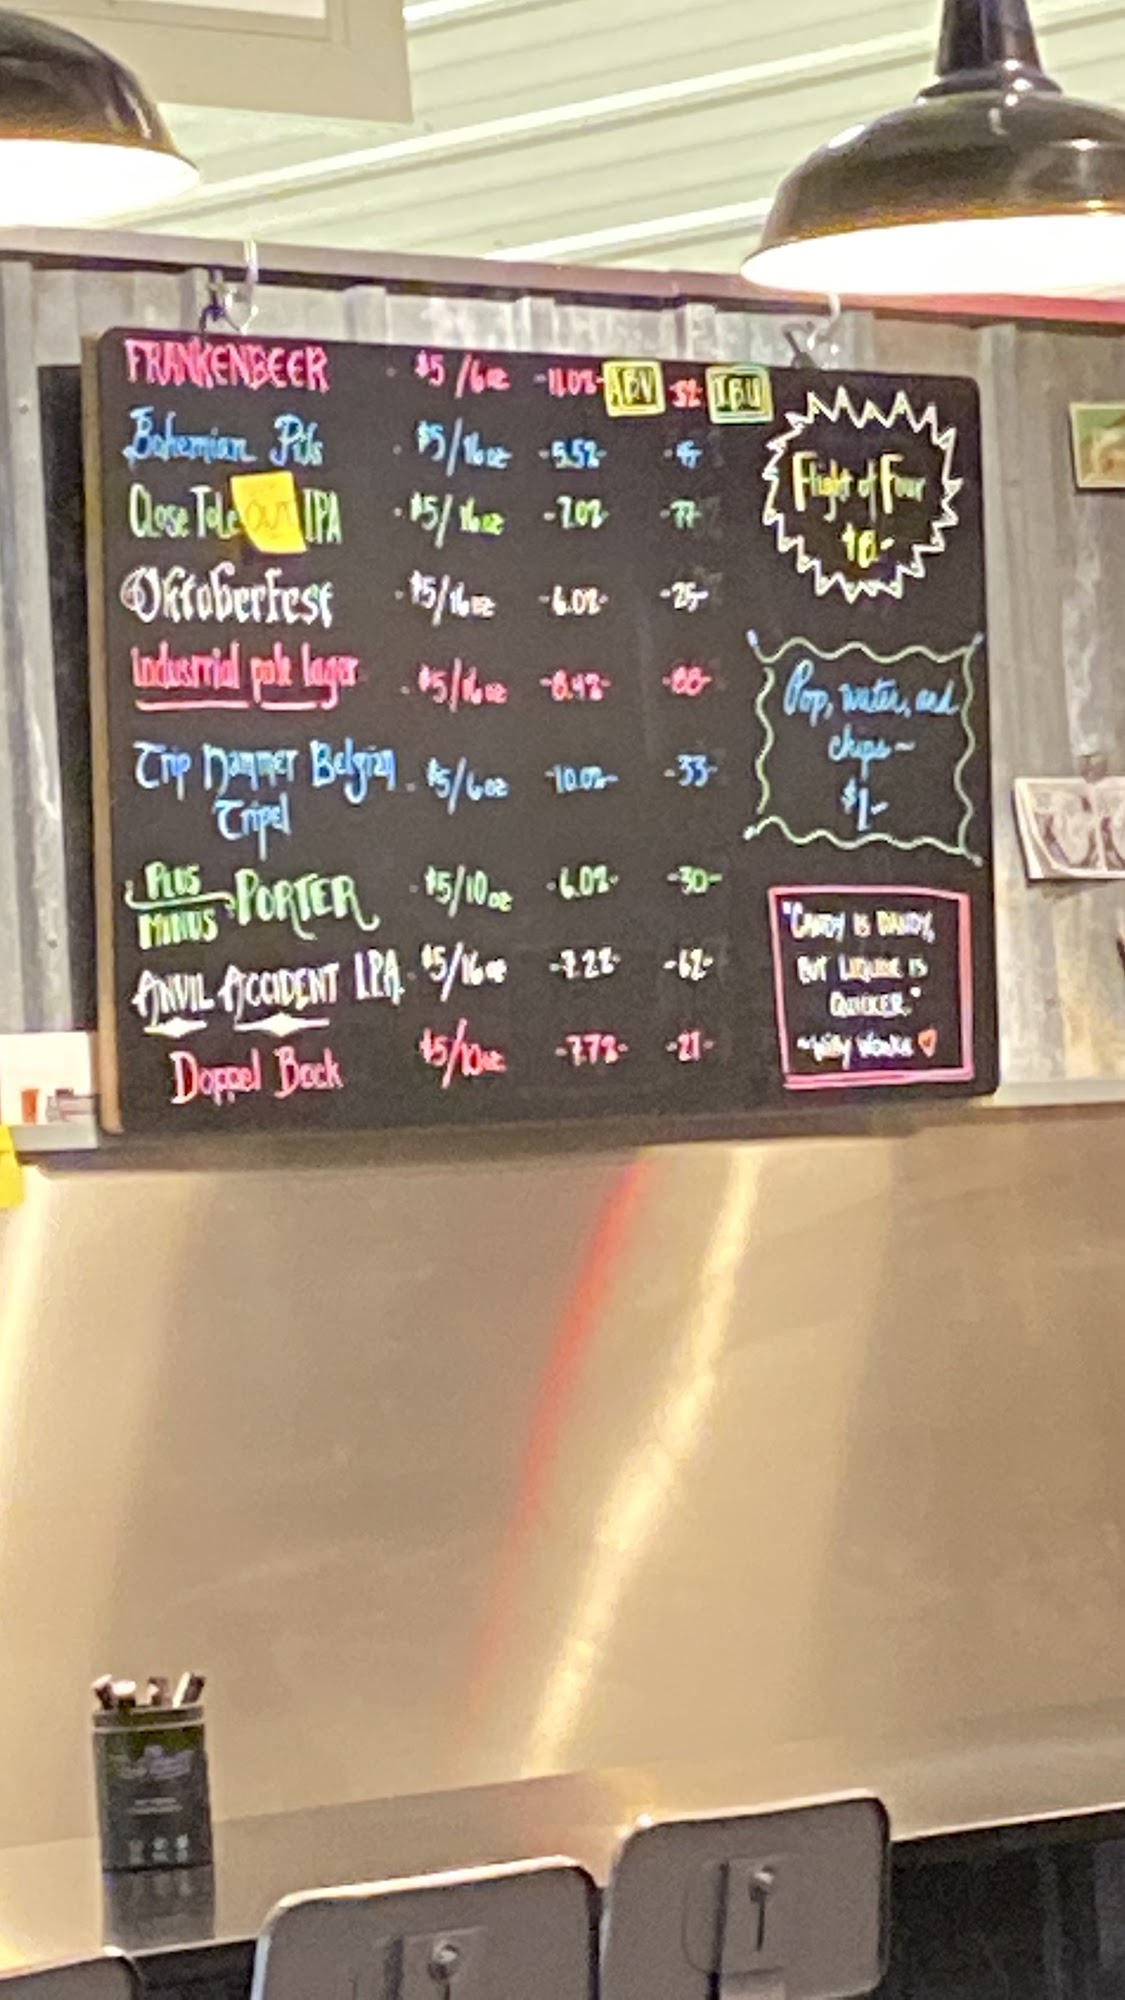 FRANKENBEER - $5/6oz -11.0%- ABV 32 IBU
Bohemian Pils - $5/16oz -5.5%-
Close Tole OUT IPA - $5/16oz -7.0%- -77-
Oktoberfest - $5/16oz -6.0%- -25-
industrial pale lager - $5/16oz -8.4%- -88-
Trip Hammer Belgian - $5/6oz -10.0%- -33-
Tripel
PLUS MINUS PORTER - $5/10oz -6.0%- -30-
ANVIL ACCIDENT I.P.A. $5/16oz -7.2%- -62-
Doppel Bock $5/10oz -7.7%- -21-
Flight of Four
Pop, water, and
chips~
$1-
"CANDY IS DANDY,
BUT LIQUOR IS
QUICKER."
~Willy Wonka